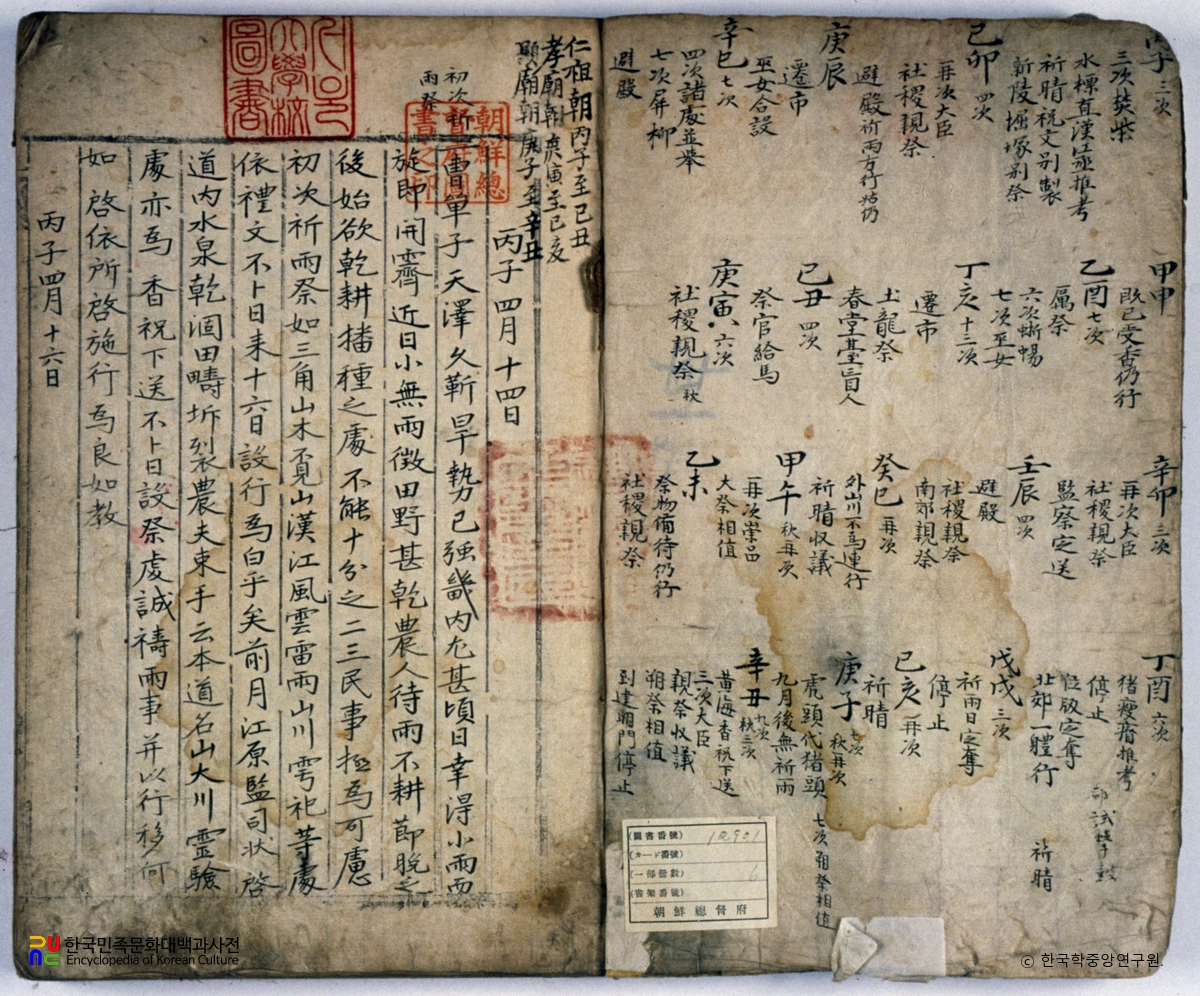 丙子 三次
三次焚柴
水標直漢江並推考
祈晴祝文別製
新陵堀塚別祭
己卯 四次
再次大臣
社稷親祭
庚辰
遷市
巫女合設
辛巳 七次
四次諸處並舉
七次屏柳
避殿
甲申
旣已受香仍行
乙酉 七次
厲祭
六次蜥蜴
七次巫女
丁亥 十三次
遷市
土龍祭
春堂臺盲人
己丑 四次
祭官給馬
庚寅 六次
社稷親祭 秋
辛卯 三次
再次大臣
社稷親祭
監察定送
壬辰 四次
避殿
社稷親祭
南郊親祭
癸巳 再次
外山川不馬連行
祈晴收議
甲午 秋再次
再次崇品
大祭相値
乙未
祭物備待仍行
社稷親祭
丁酉 六次
猪瘦瘠推考
停止
位版定奪
北郊一體行
祈晴
戊戌 三次
祈雨日定奪
停止
己亥 再次
祈晴
庚子 七次 秋再次
虎頭代猪頭 七次朔祭相値
九月後無祈雨
辛丑 九次 秋三次
黃海香祝下送
三次大臣
親祭收議
朔祭相値
到建朔門停止
(圖書番號) 12901
(カード番號)
(一部冊數) 6
(書架番號)
朝鮮總督府
仁祖朝丙子至己丑
孝廟朝庚寅至己亥
顯廟朝庚子至辛丑
丙子四月十四日
初次祈雨祭
曹單子天澤久靳旱勢已强畿內尤甚頃日幸得小雨而
旋卽開霽近日小無雨徵田野甚乾農人待雨不耕節晩之
後始欲乾耕播種之處不能十分之二三民事極爲可慮
初次祈雨祭如三角山木覓山漢江風雲雷雨山川雩祀等處
依禮文不卜日來十六日設行爲白乎矣前月江原監司狀啓
道內水泉乾涸田疇坼裂農夫束手云本道名山大川靈驗
處亦爲 香祝下送不卜日設祭虔誠禱雨事幷以行移何
如 啓依所啓施行爲良如教
丙子四月十六日
朝鮮總督府圖書之印
圖書
한국민족문화대백과사전
Encyclopedia of Korean Culture
ⓒ 한국학중앙연구원